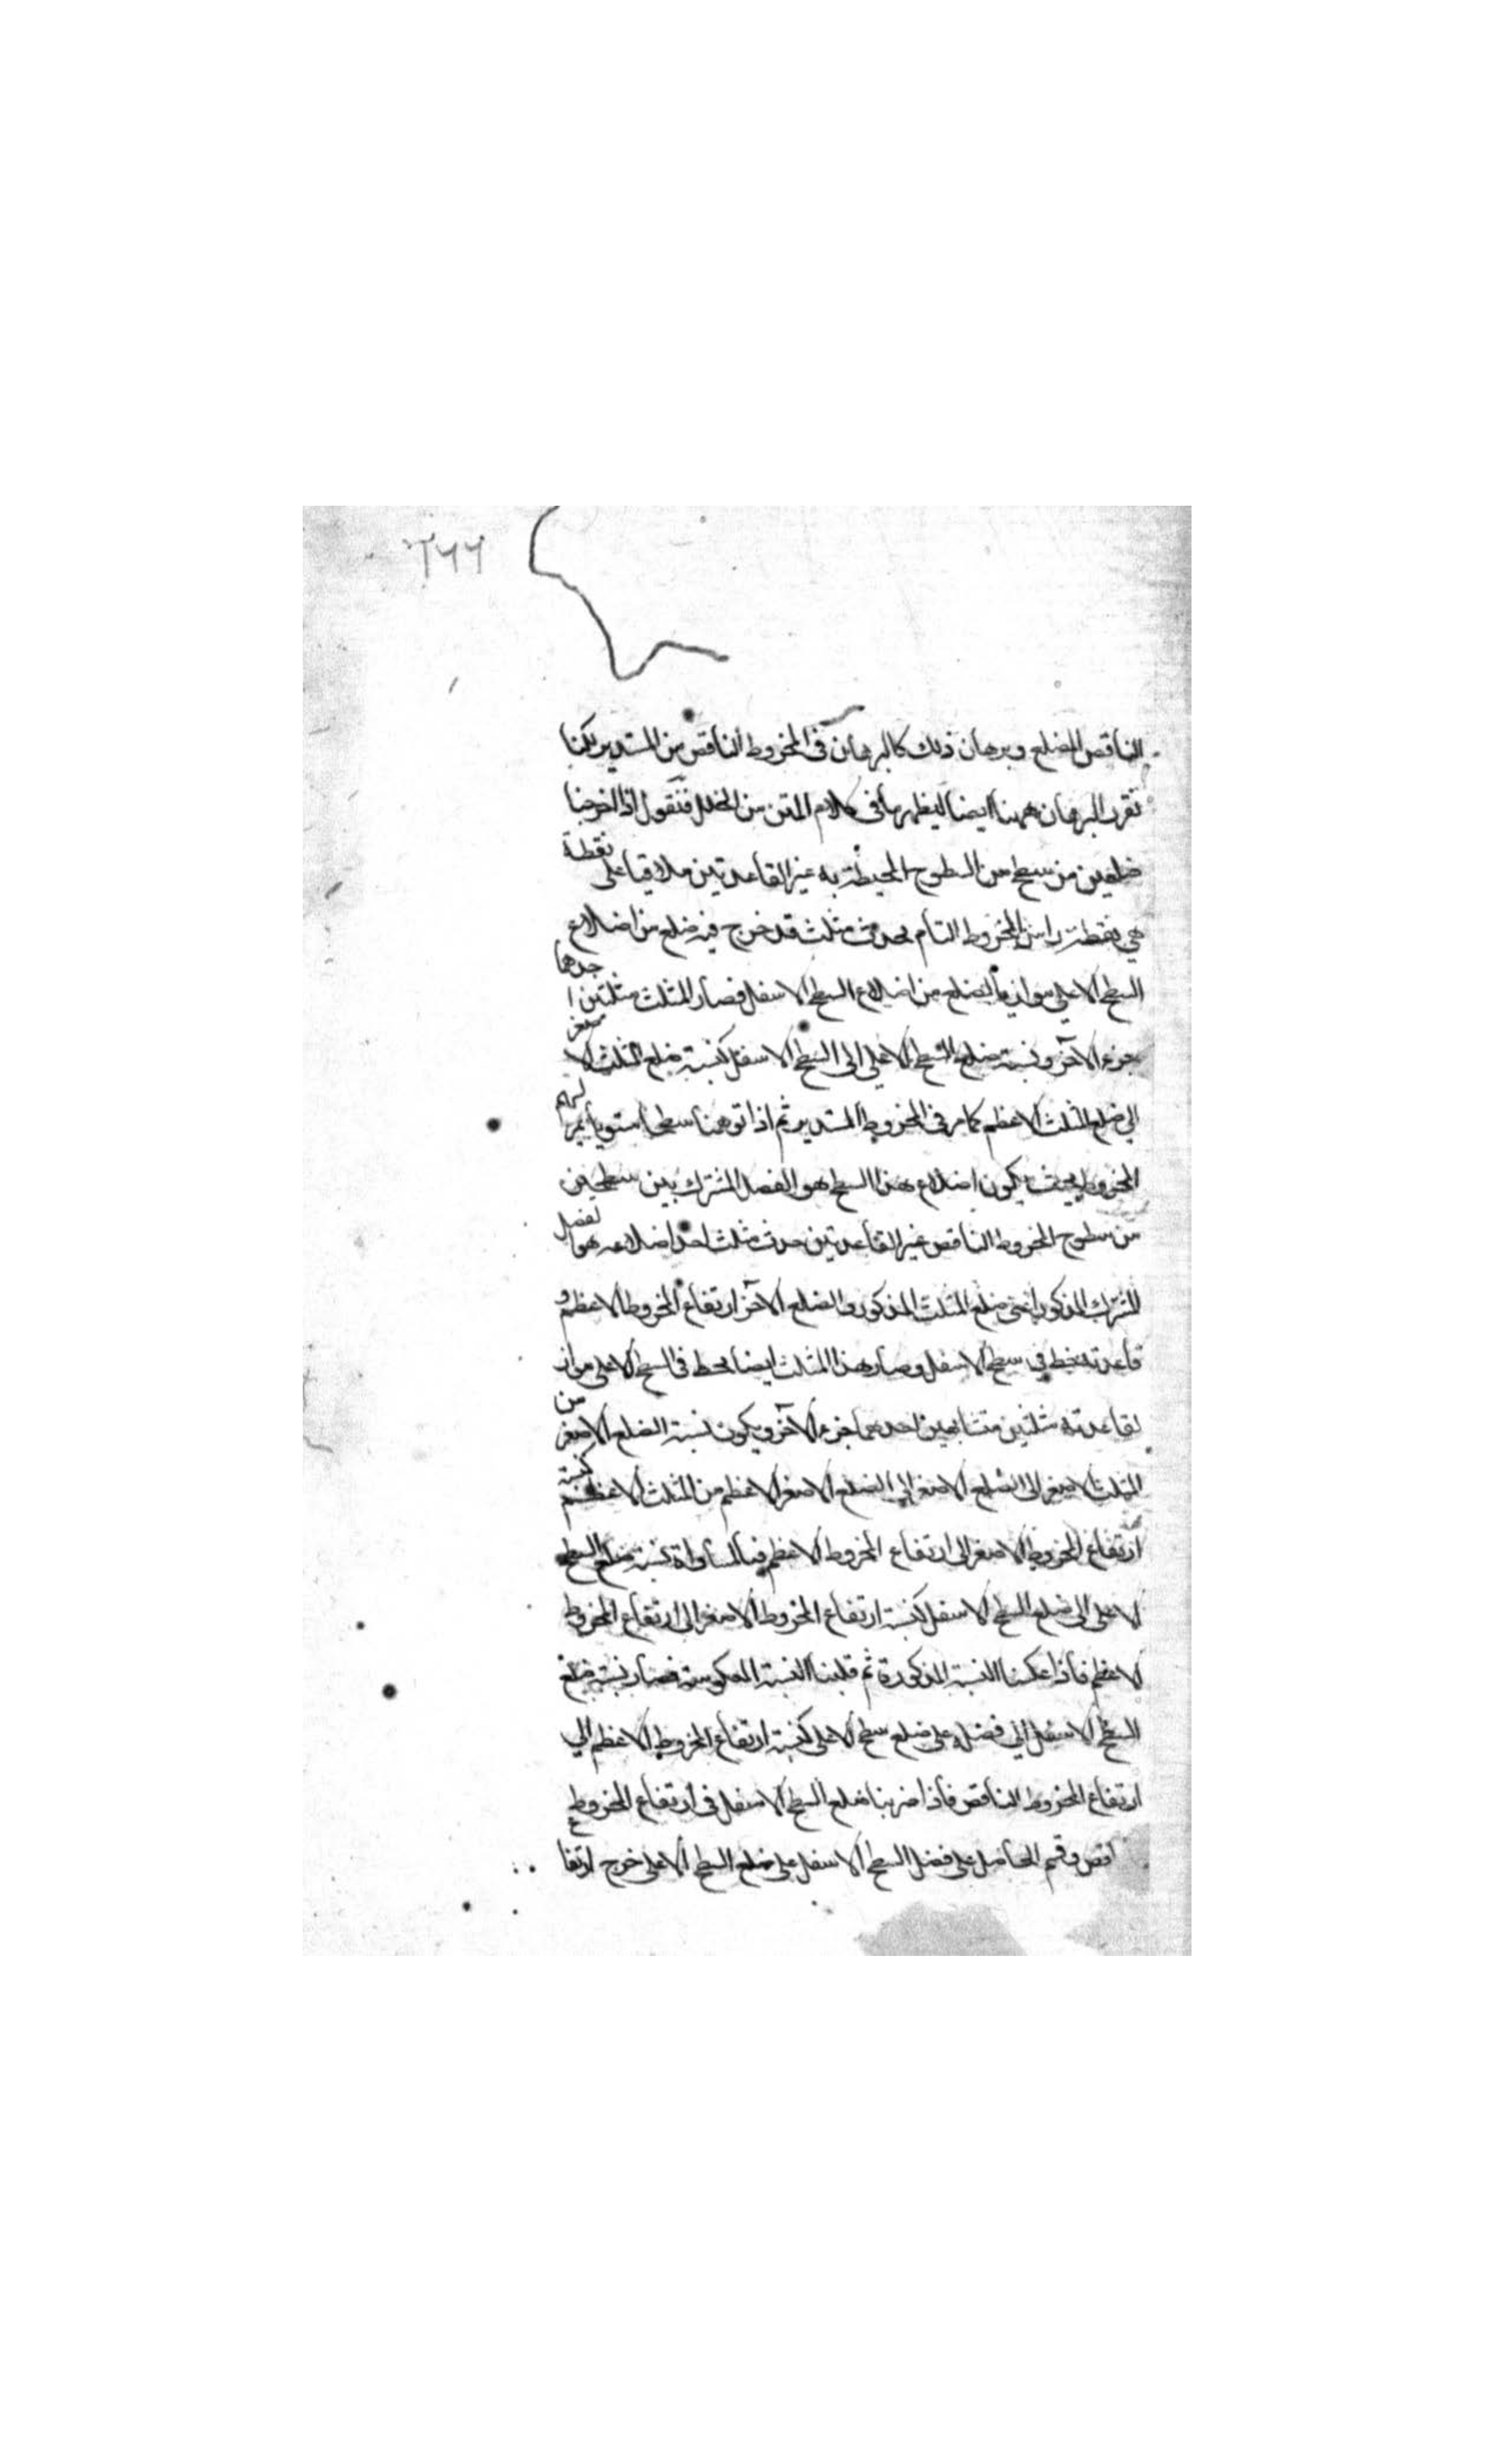 ٢٦٦
الناقص المضلع وبرهان ذلك كالبرهان في المخروط الناقص من المستدير لكنا
نقرر البرهان ههنا ايضا ليظهر ما في كلام المتن من الخلل فنقول اذا اخرجنا
ضلعين من سطح من السطوح المحيطة به غير القاعدتين ملاقيا على نقطة
هي نقطة راس المخروط التام يحدث مثلث قد خرج فيه ضلع من اضلاع
السطح الاعلى موازيا لضلع من اضلاع السطح الاسفل فصار المثلث مثلثين احدهما
جزء الآخر ونسبة ضلع السطح الاعلى الى السطح الاسفل كنسبة ضلع المثلث الاصغر
الى ضلع المثلث الاعظم كما مر في المخروط المستدير ثم اذا توهمنا سطحا مستويا يمر بسهم
المخروط بحيث يكون اضلاع هذا السطح هو الفصل المشترك بين سطحين
من سطوح المخروط الناقص غير القاعدتين حدث مثلث احد اضلاعه هو الفصل
المشترك المذكور اعنى ضلع المثلث المذكور والضلع الآخر ارتفاع المخروط الاعظم و
قاعدته خط في سطح الاسفل وصار هذا المثلث ايضا بخط في السطح الاعلى مواز
لقاعدته مثلثين متشابهين احدهما جزء الآخر ويكون نسبة الضلع الاصغر من
المثلث الاصغر الى الضلع الاصغر الى الضلع الاصغر الاعظم من المثلث الاعظم كنسبة
ارتفاع المخروط الاصغر الى ارتفاع المخروط الاعظم فبالمساواة نسبة ضلع السطح
الاعلى الى ضلع السطح الاسفل كنسبة ارتفاع المخروط الاصغر الى ارتفاع المخروط
الاعظم فاذا عكسنا النسبة المذكورة ثم قلبنا النسبة المعكوسة فصار نسبة ضلع
السطح الاسفل الى فضله على ضلع سطح الاعلى كنسبة ارتفاع المخروط الاعظم الى
ارتفاع المخروط الناقص فاذا ضربنا ضلع السطح الاسفل في ارتفاع المخروط
اقص وقسم الحاصل على فضل السطح الاسفل على ضلع السطح الاعلى خرج ارتفا